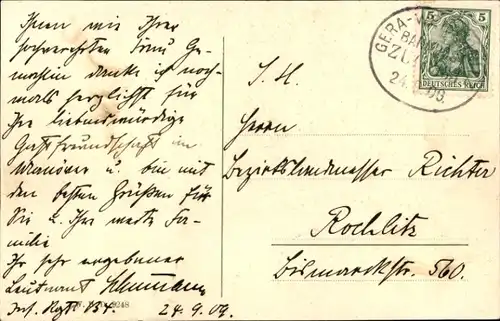 Ihnen wie Ihrer
hochverehrten Frau Ge-
mahlin danke ich noch-
mals herzlichst für
Ihre liebenswürdige
Gastfreundschaft im
Manöver u. bin mit
den besten Grüßen für
Sie u. Ihre werte Fa-
milie
Ihr sehr ergebener
Leutnant Schumann
Inf. Rgt. 134. 24.9.09.
9248
GERA-W
BAHNP
ZUG
24. 9. 09.
5 5
DEUTSCHES REICH
S. H.
Herrn
Bezirkslandmesser Richter
Rochlitz
Bismarckstr. 560.